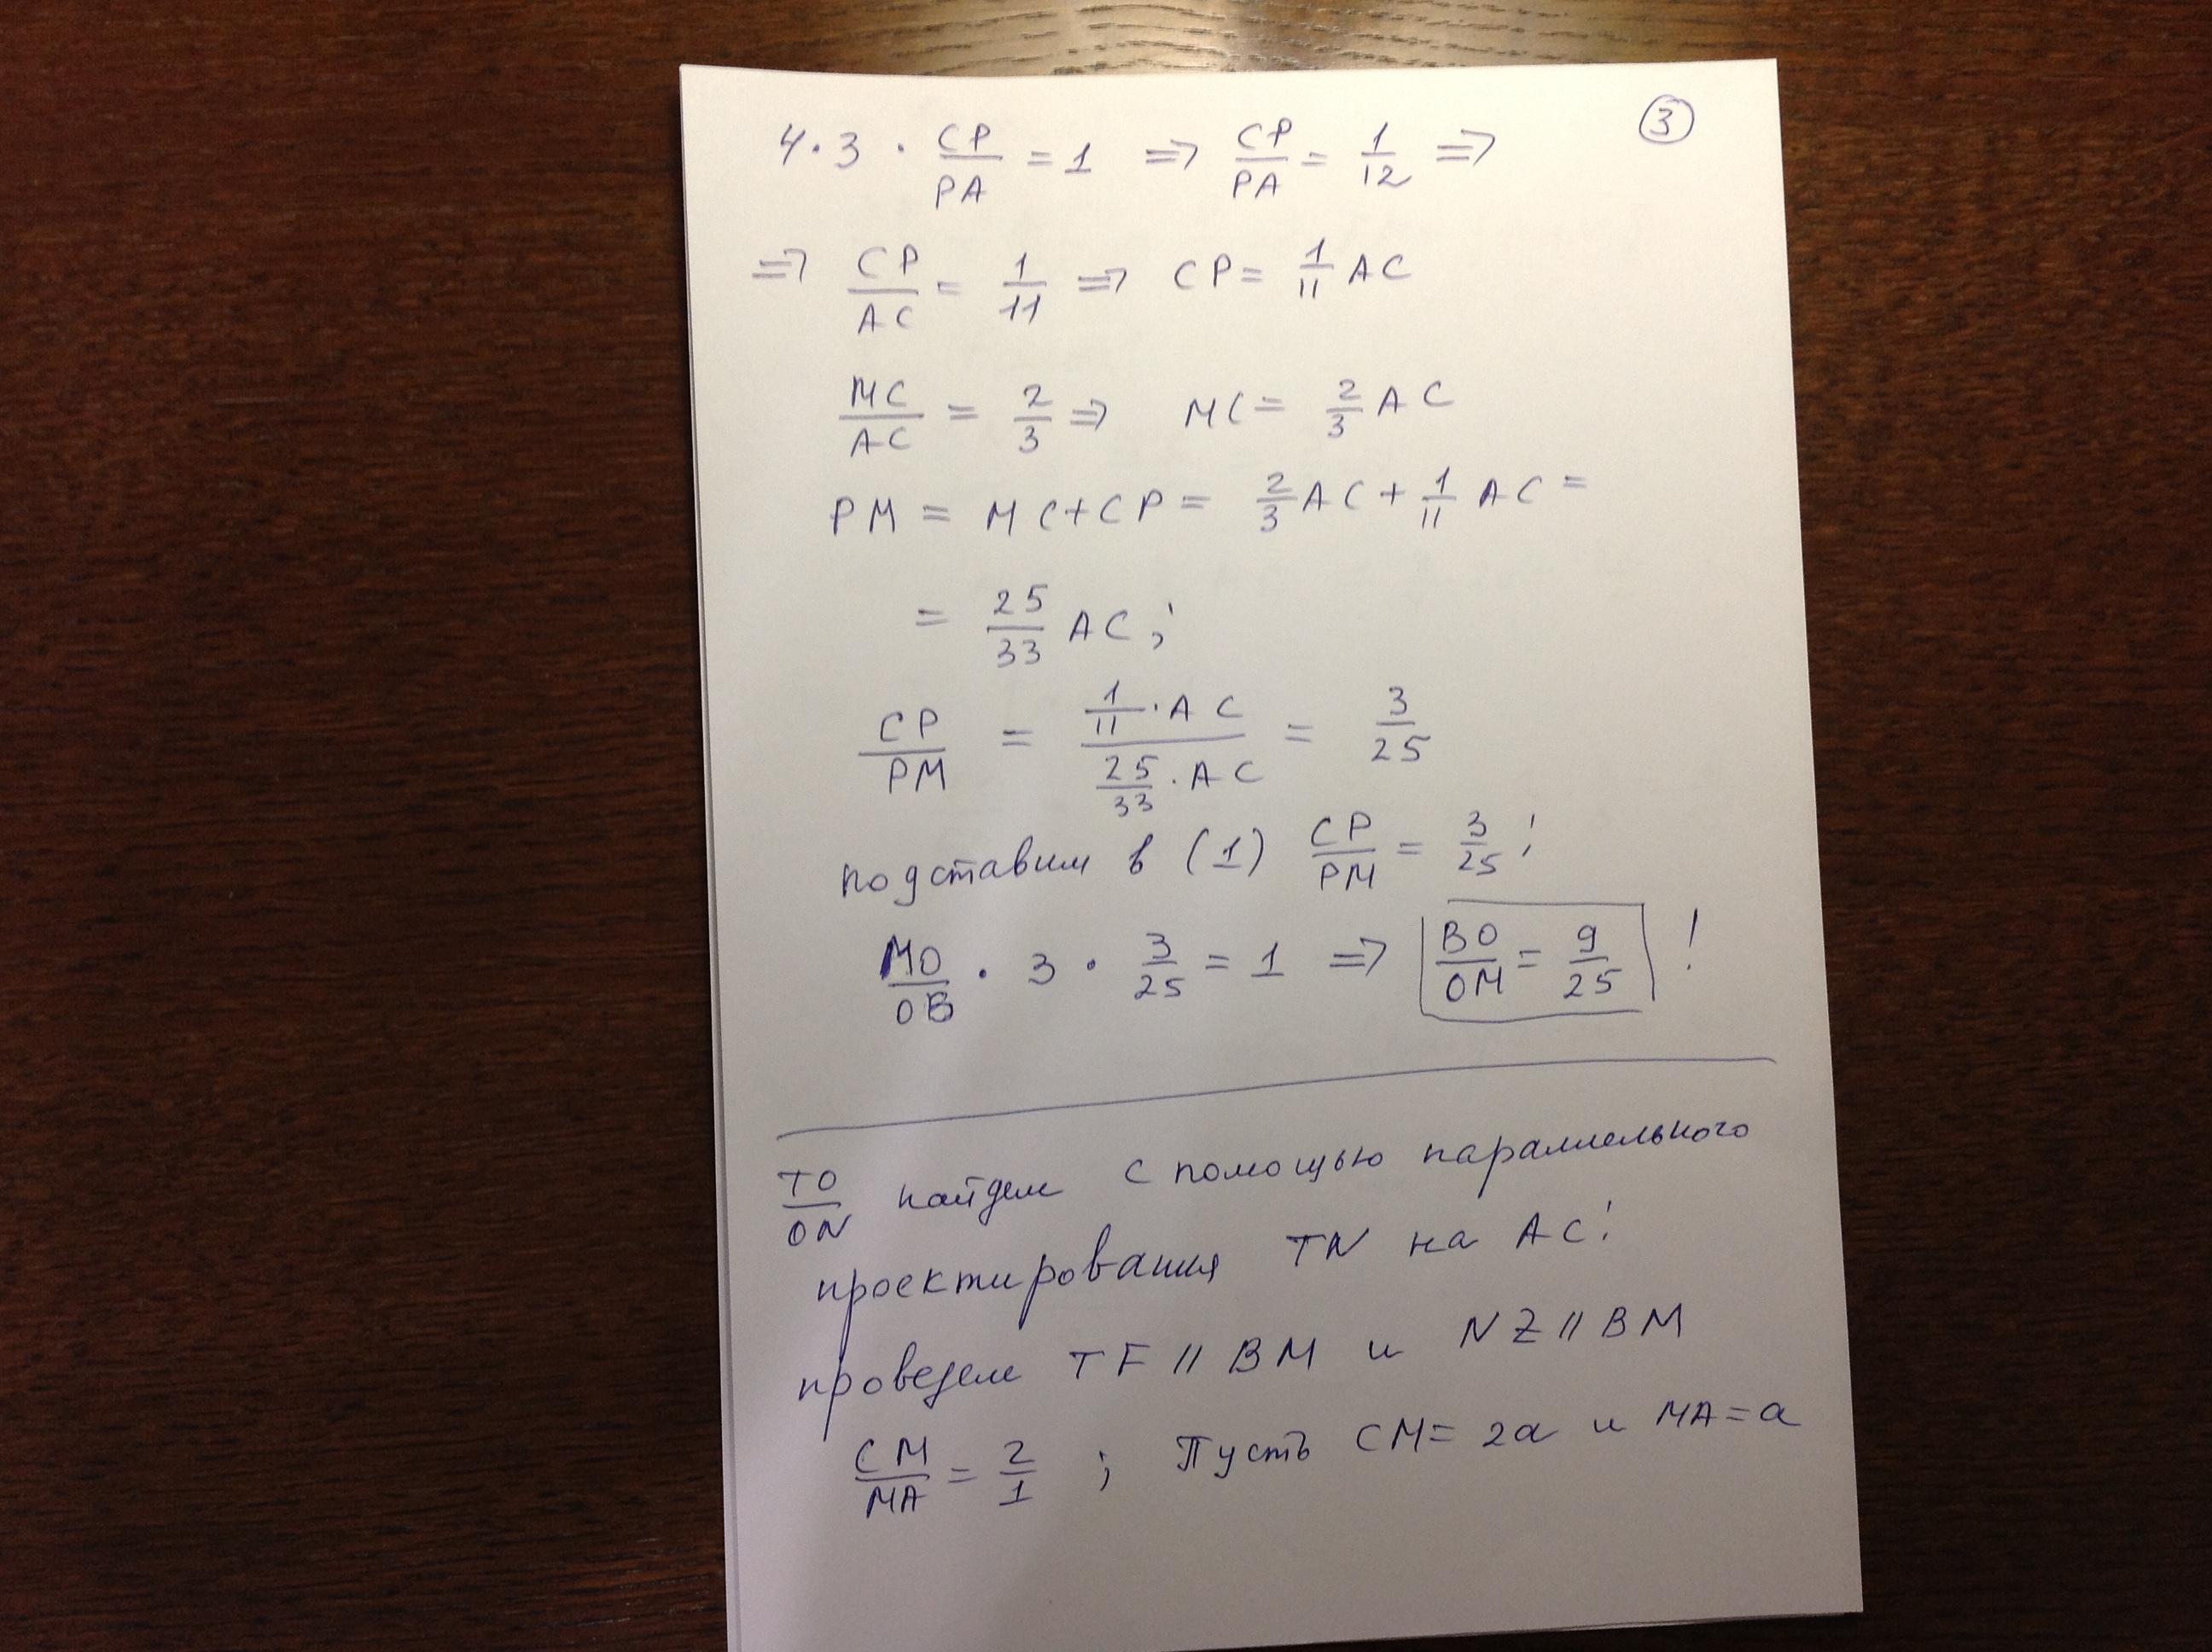 ③
4·3 · CP/PA = 1 ⇒ CP/PA = 1/12 ⇒
⇒ CP/AC = 1/11 ⇒ CP = 1/11 AC
MC/AC = 2/3 ⇒ MC = 2/3 AC
PM = MC + CP = 2/3 AC + 1/11 AC =
= 25/33 AC;
CP/PM = (1/11 · AC)/(25/33 · AC) = 3/25
подставим в (1) CP/PM = 3/25;
MO/OB · 3 · 3/25 = 1 ⇒ BO/OM = 9/25 !
TO/ON найдем с помощью параллельного
проектирования TN на AC:
проведем TF || BM и NZ || BM
CM/MA = 2/1 ; Пусть CM = 2a и MA = a